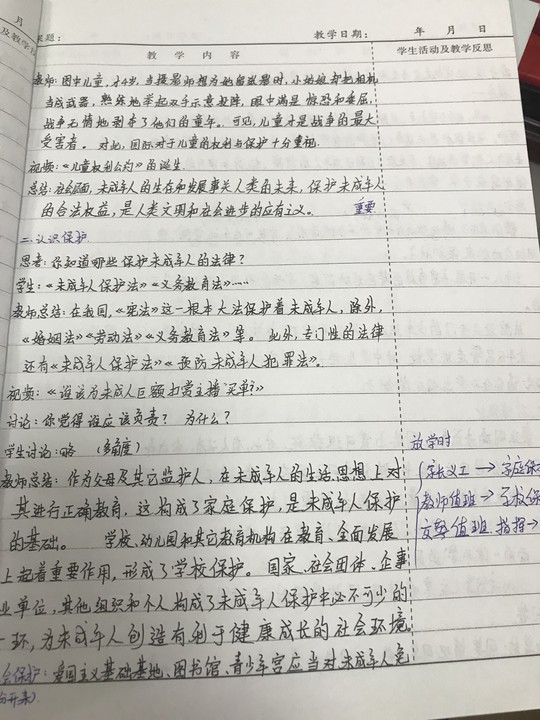 月
课题：
教学日期：　年　月　日
教 学 内 容
学生活动及教学反思
教师：图中儿童，才4岁，当摄影师想为她留影时，小姑娘却把相机
当成武器，熟练地举起双手示意投降，眼中满是惊恐和委屈，
战争无情地剥夺了他们的童年。可见，儿童才是战争的最大
受害者。对此，国际对于儿童的权利与保护十分重视．
视频：《儿童权利公约》的诞生．
总结：未成年人的生存和发展事关人类的未来，保护未成年人
的合法权益，是人类文明和社会进步的应有之义。　重要
二．认识保护．
思考：你知道哪些保护未成年人的法律？
学生：《未成年人保护法》《义务教育法》……
教师总结：在我国，《宪法》这一根本大法保护着未成年人，除外，
《婚姻法》《劳动法》《义务教育法》等。此外，专门性的法律
还有《未成年人保护法》《预防未成年人犯罪法》．
视频：《谁该为未成人巨额打赏主播买单？》
讨论：你觉得谁应该负责？为什么？
学生讨论：略　（多角度）
教师总结：作为父母及其它监护人，在未成年人的生活、思想上对
其进行正确教育，这构成了家庭保护，是未成年人保护
的基础。　学校、幼儿园和其它教育机构在教育、全面发展
上起着重要作用，形成了学校保护。国家、社会团体、企事
业单位，其他组织和个人构成了未成年人保护中必不可少的
一环，为未成年人创造有利于健康成长的社会环境
会保护：爱国主义基础基地、图书馆、青少年宫应当对未成年人免
开来）．
放学时
家长义工→家庭保
教师值班→学校保
交警值班、指挥→